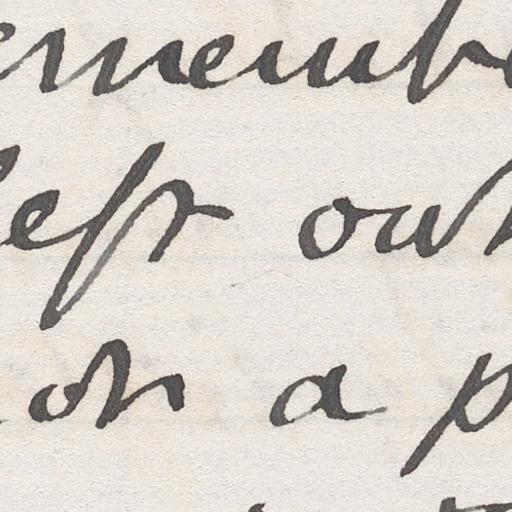 emembe
left out
on a p